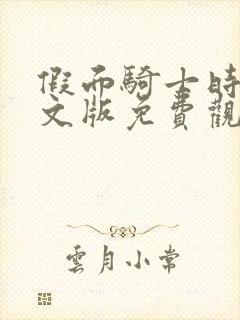 假面騎士時
文版免費觀
雲月小常